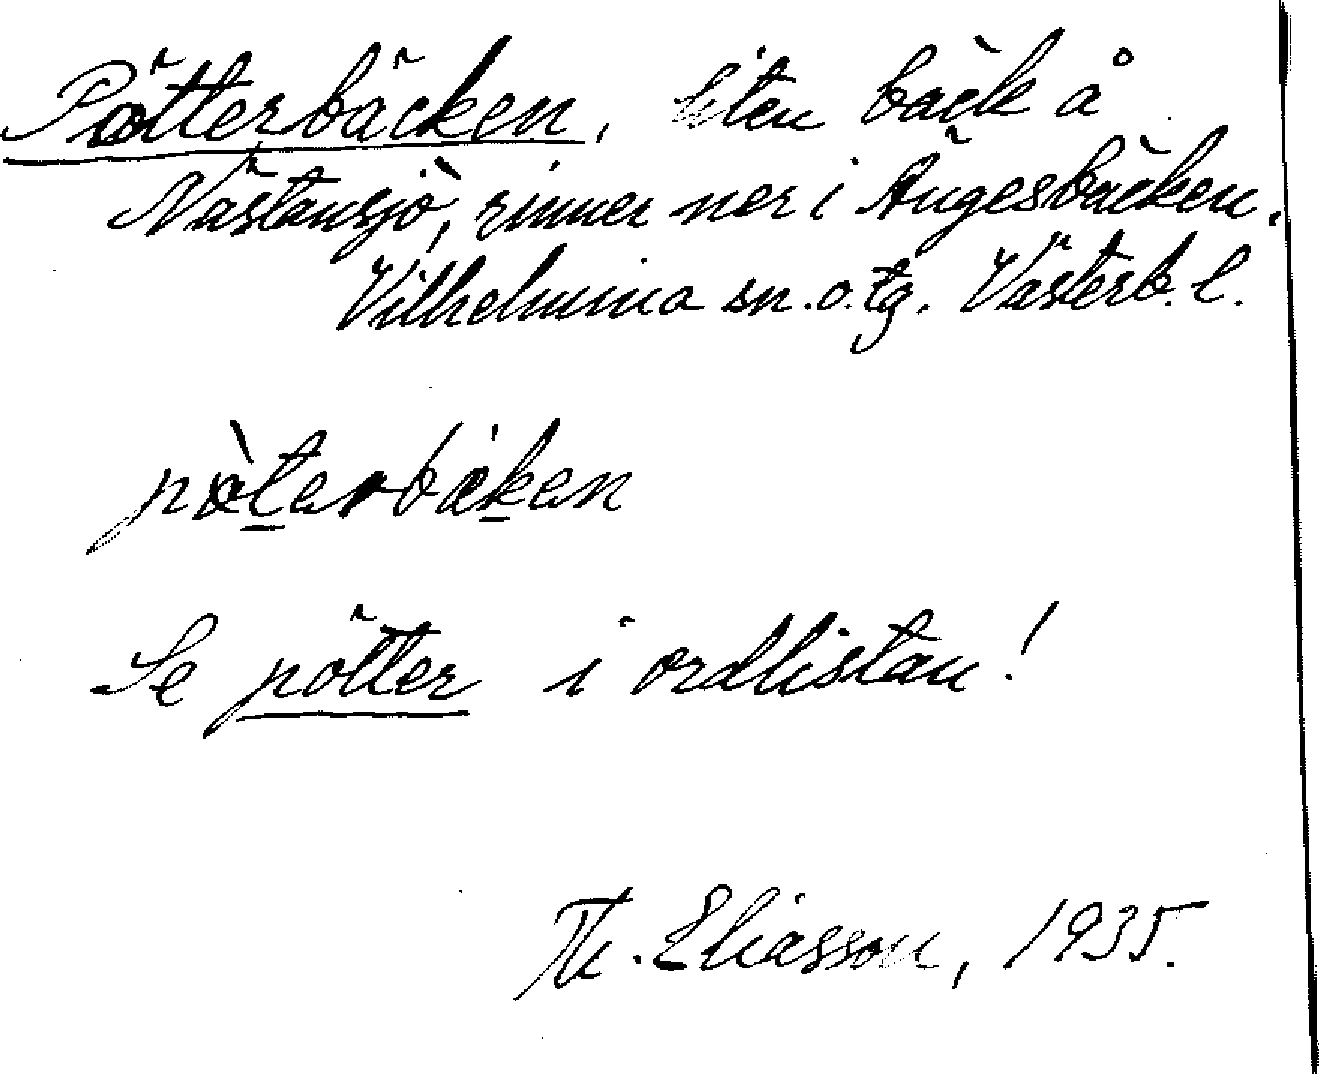 Pötterbäcken, liten bäck å
Nästansjö, rinner ner i Ängesbäcken.
Vilhelmina sn. o. tg. Västerb. l.
Se pötter i ordlistan!
Th. Eliasson, 1935.